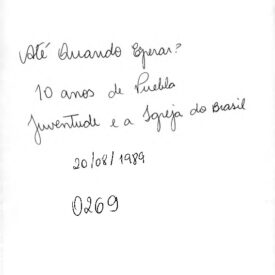 Até Quando Esperar?
10 anos de Puebla
Juventude e a Igreja do Brasil
20/08/1989
0269